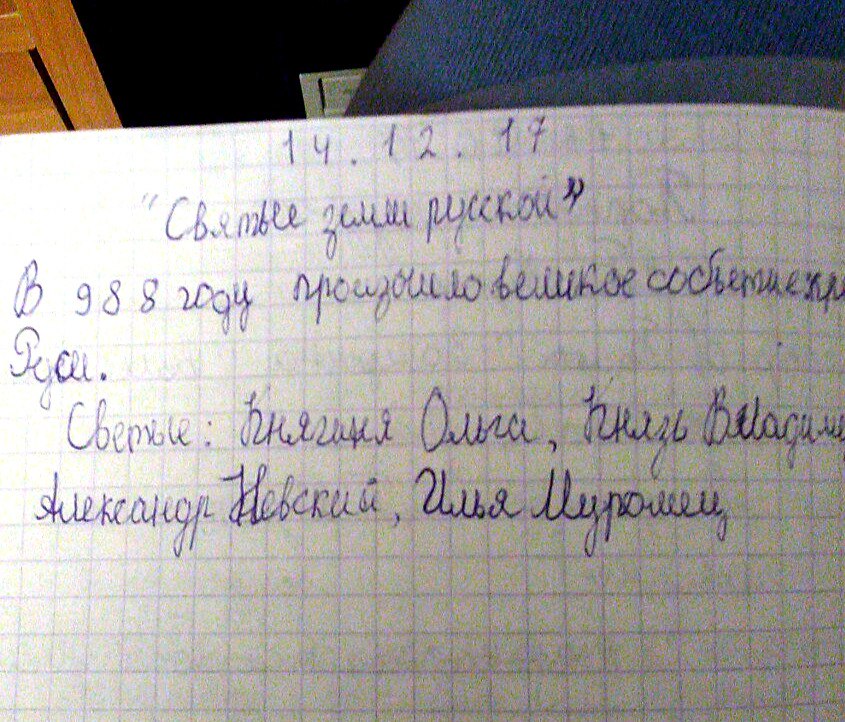 14.12.17
"Святые земли русской"
В 988 году произошло великое событие
Руси.
Светые: Княгиня Ольга, Князь
Александр Невский, Илья Муромец